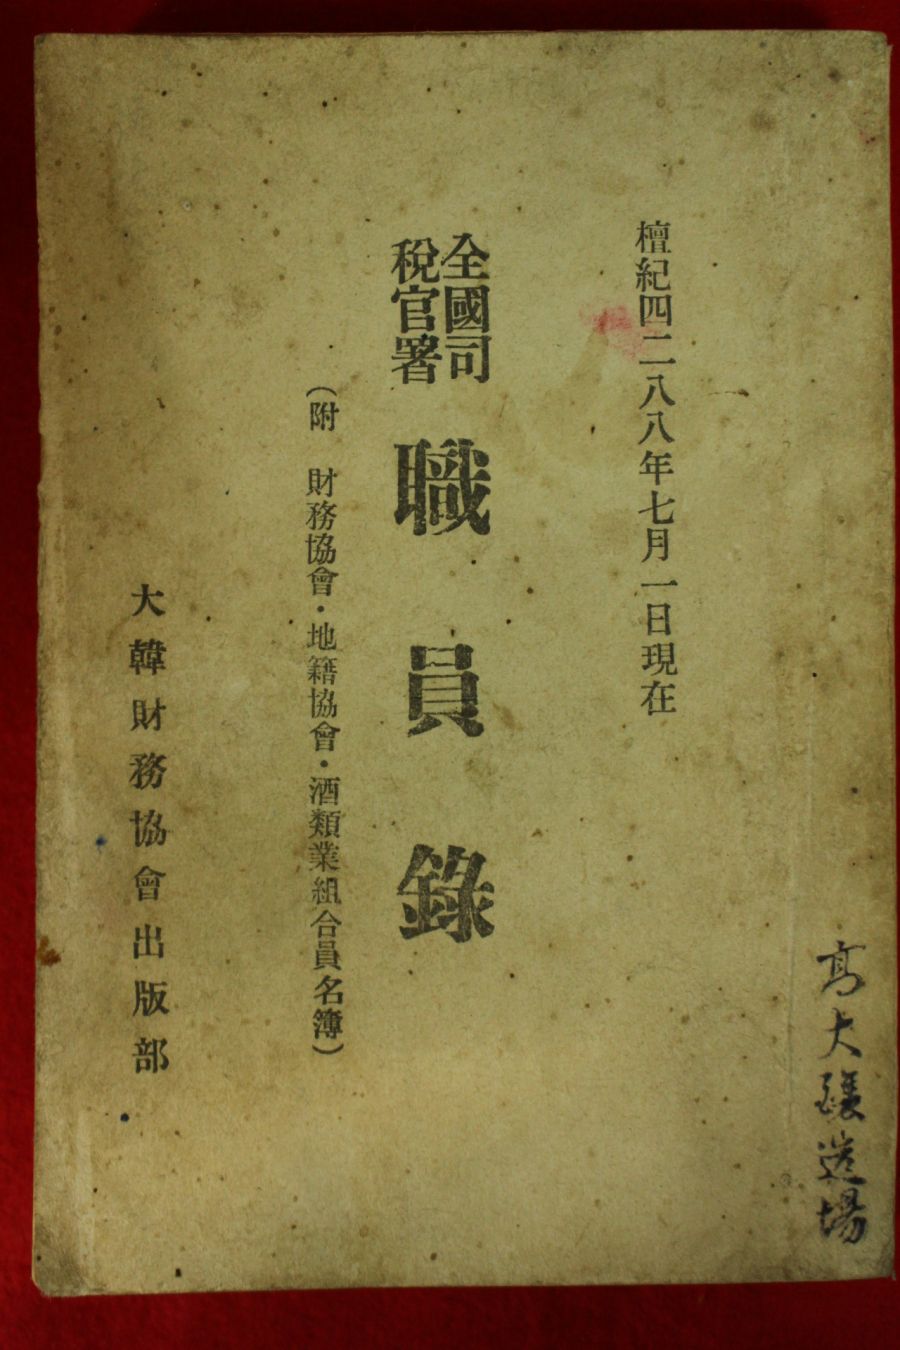 檀紀四二八八年七月一日現在
全國司
稅官署
職員錄
（附　財務協會・地籍協會・酒類業組合員名簿）
大韓財務協會出版部
高大釀造場